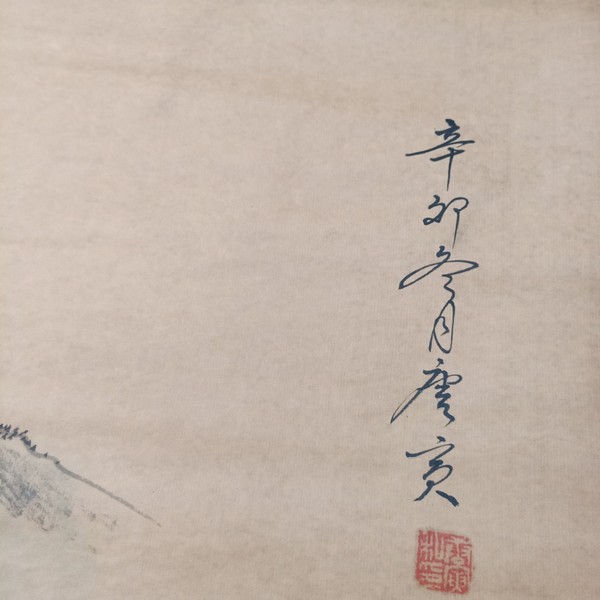 辛卯冬月唐寅